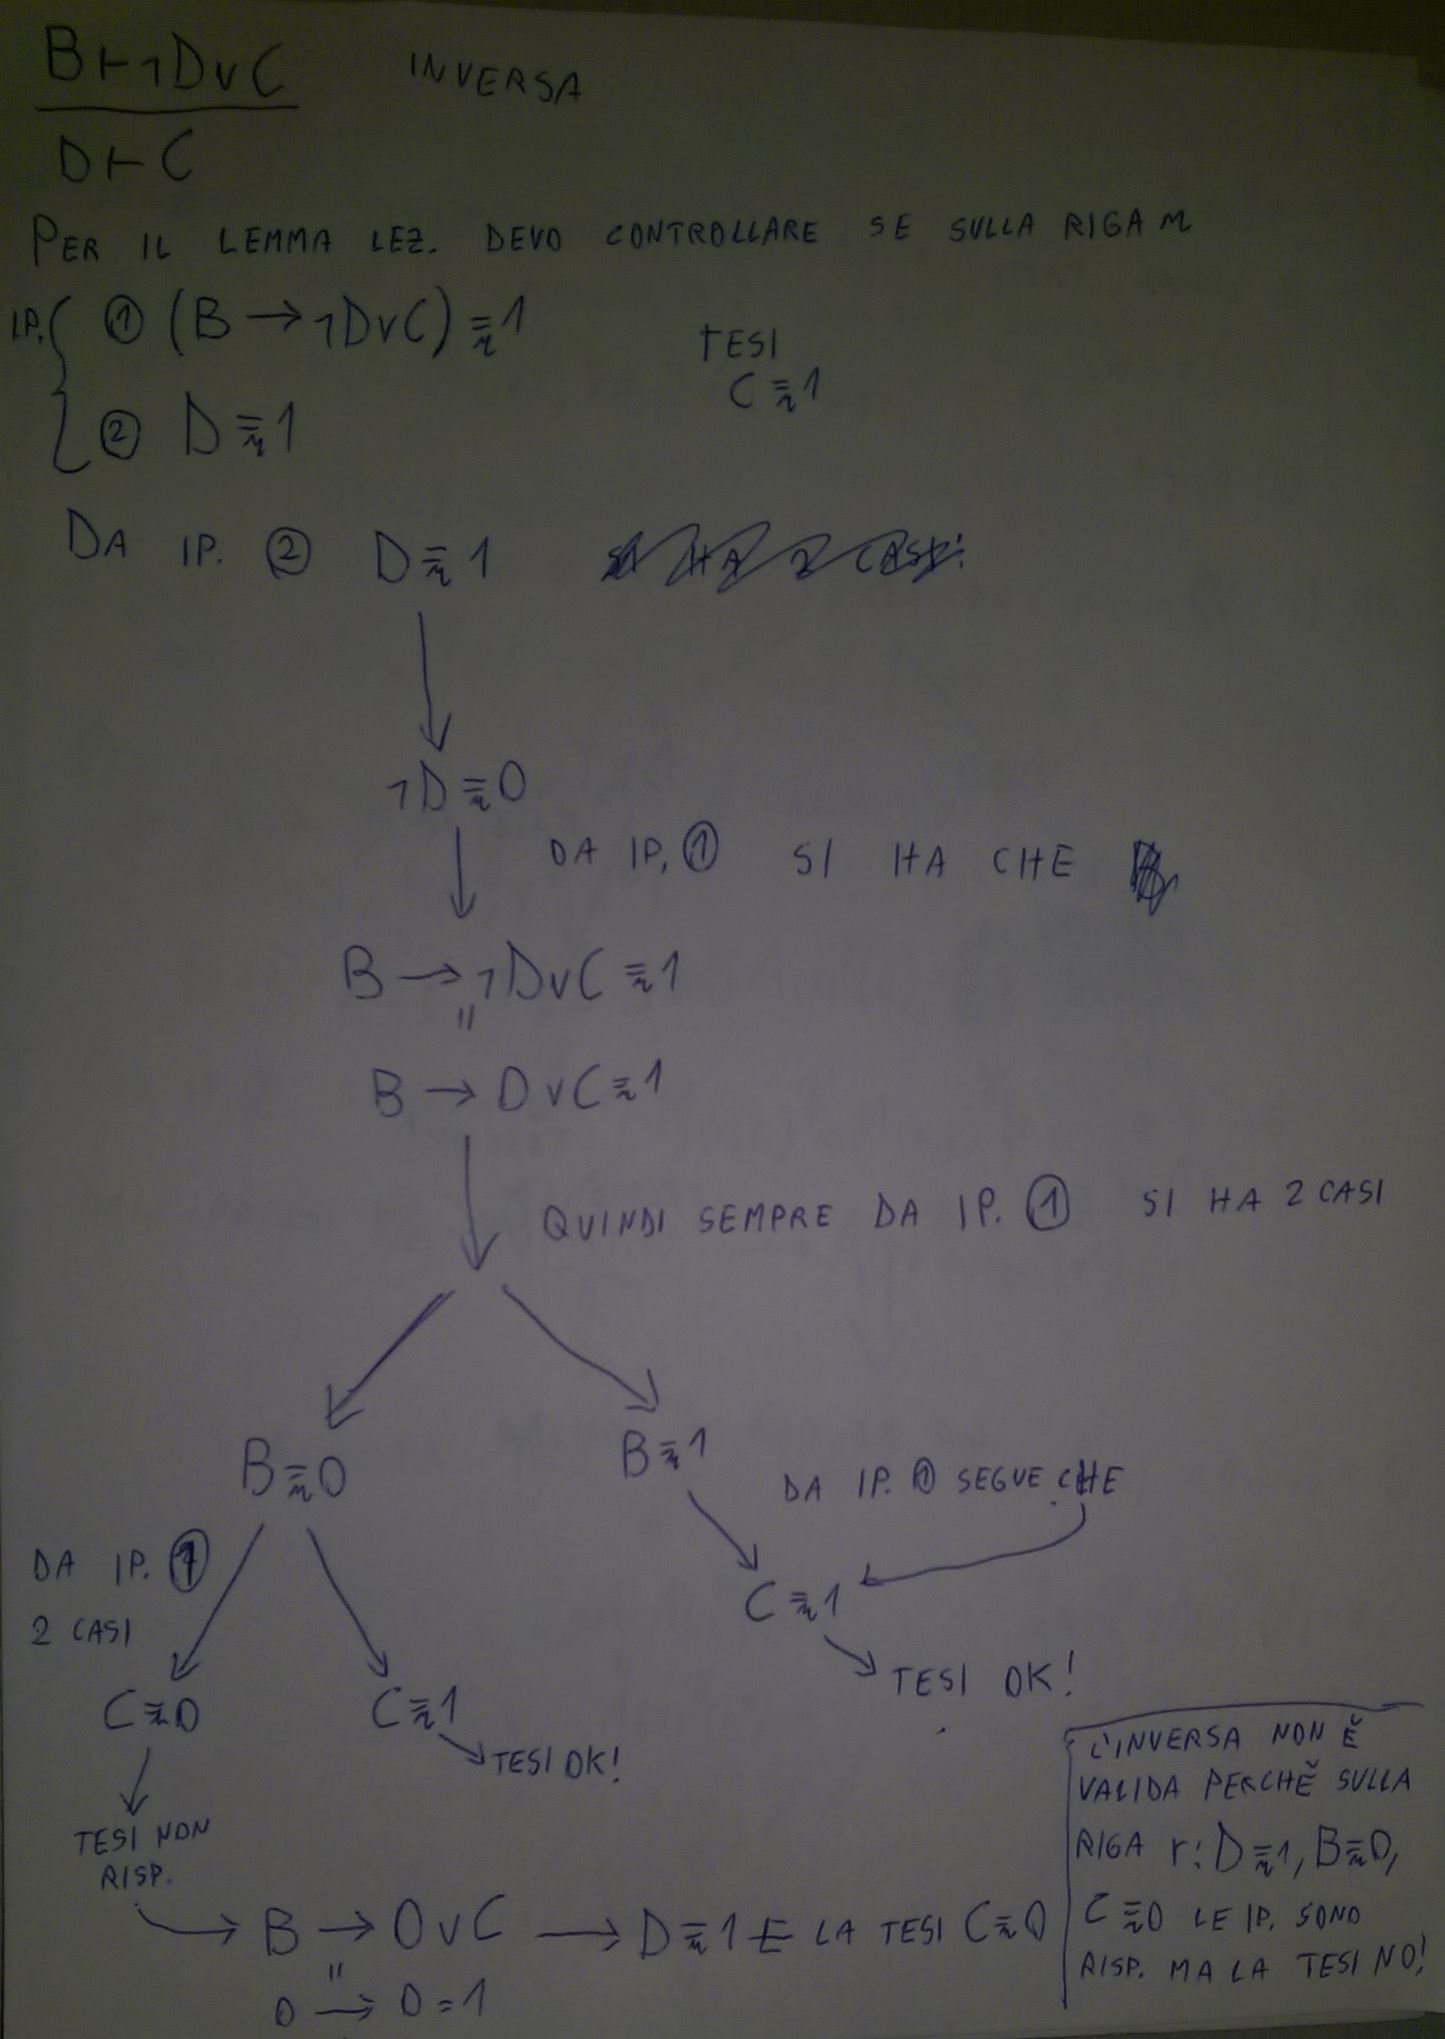 B⊢¬D∨C INVERSA
D⊢C
PER IL LEMMA LEZ. DEVO CONTROLLARE SE SULLA RIGA r
IP. { ① (B → ¬D∨C) ≡r 1
TESI
C ≡r 1
② D ≡r 1
DA IP. ② D ≡r 1
¬D ≡r 0
DA IP. ① SI HA CHE
B → ¬D∨C ≡r 1
=
B → 0∨C ≡r 1
QUINDI SEMPRE DA IP. ① SI HA 2 CASI
B ≡r 0
B ≡r 1
DA IP. ① SEGUE CHE
C ≡r 1
TESI OK!
DA IP. ①
2 CASI
C ≡r 0
C ≡r 1
TESI OK!
TESI NON
RISP.
B → 0∨C → D ≡r 1 E LA TESI C ≡r 0
=
0 → 0 = 1
L'INVERSA NON È
VALIDA PERCHÈ SULLA
RIGA r: D ≡r 1, B ≡r 0,
C ≡r 0 LE IP. SONO
RISP. MA LA TESI NO!